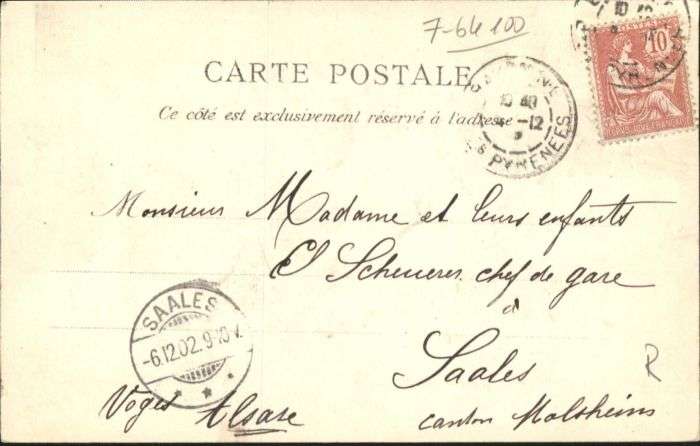 7-64 100
CARTE POSTALE
Ce côté est exclusivement réservé à l'adresse
10
PYRENEES
Monsieur Madame et leurs enfants
El Scheuerer chef de gare
à
Saales
canton Molsheim
Voges Alsace
SAALES
-6.12.02.9-10V.
R